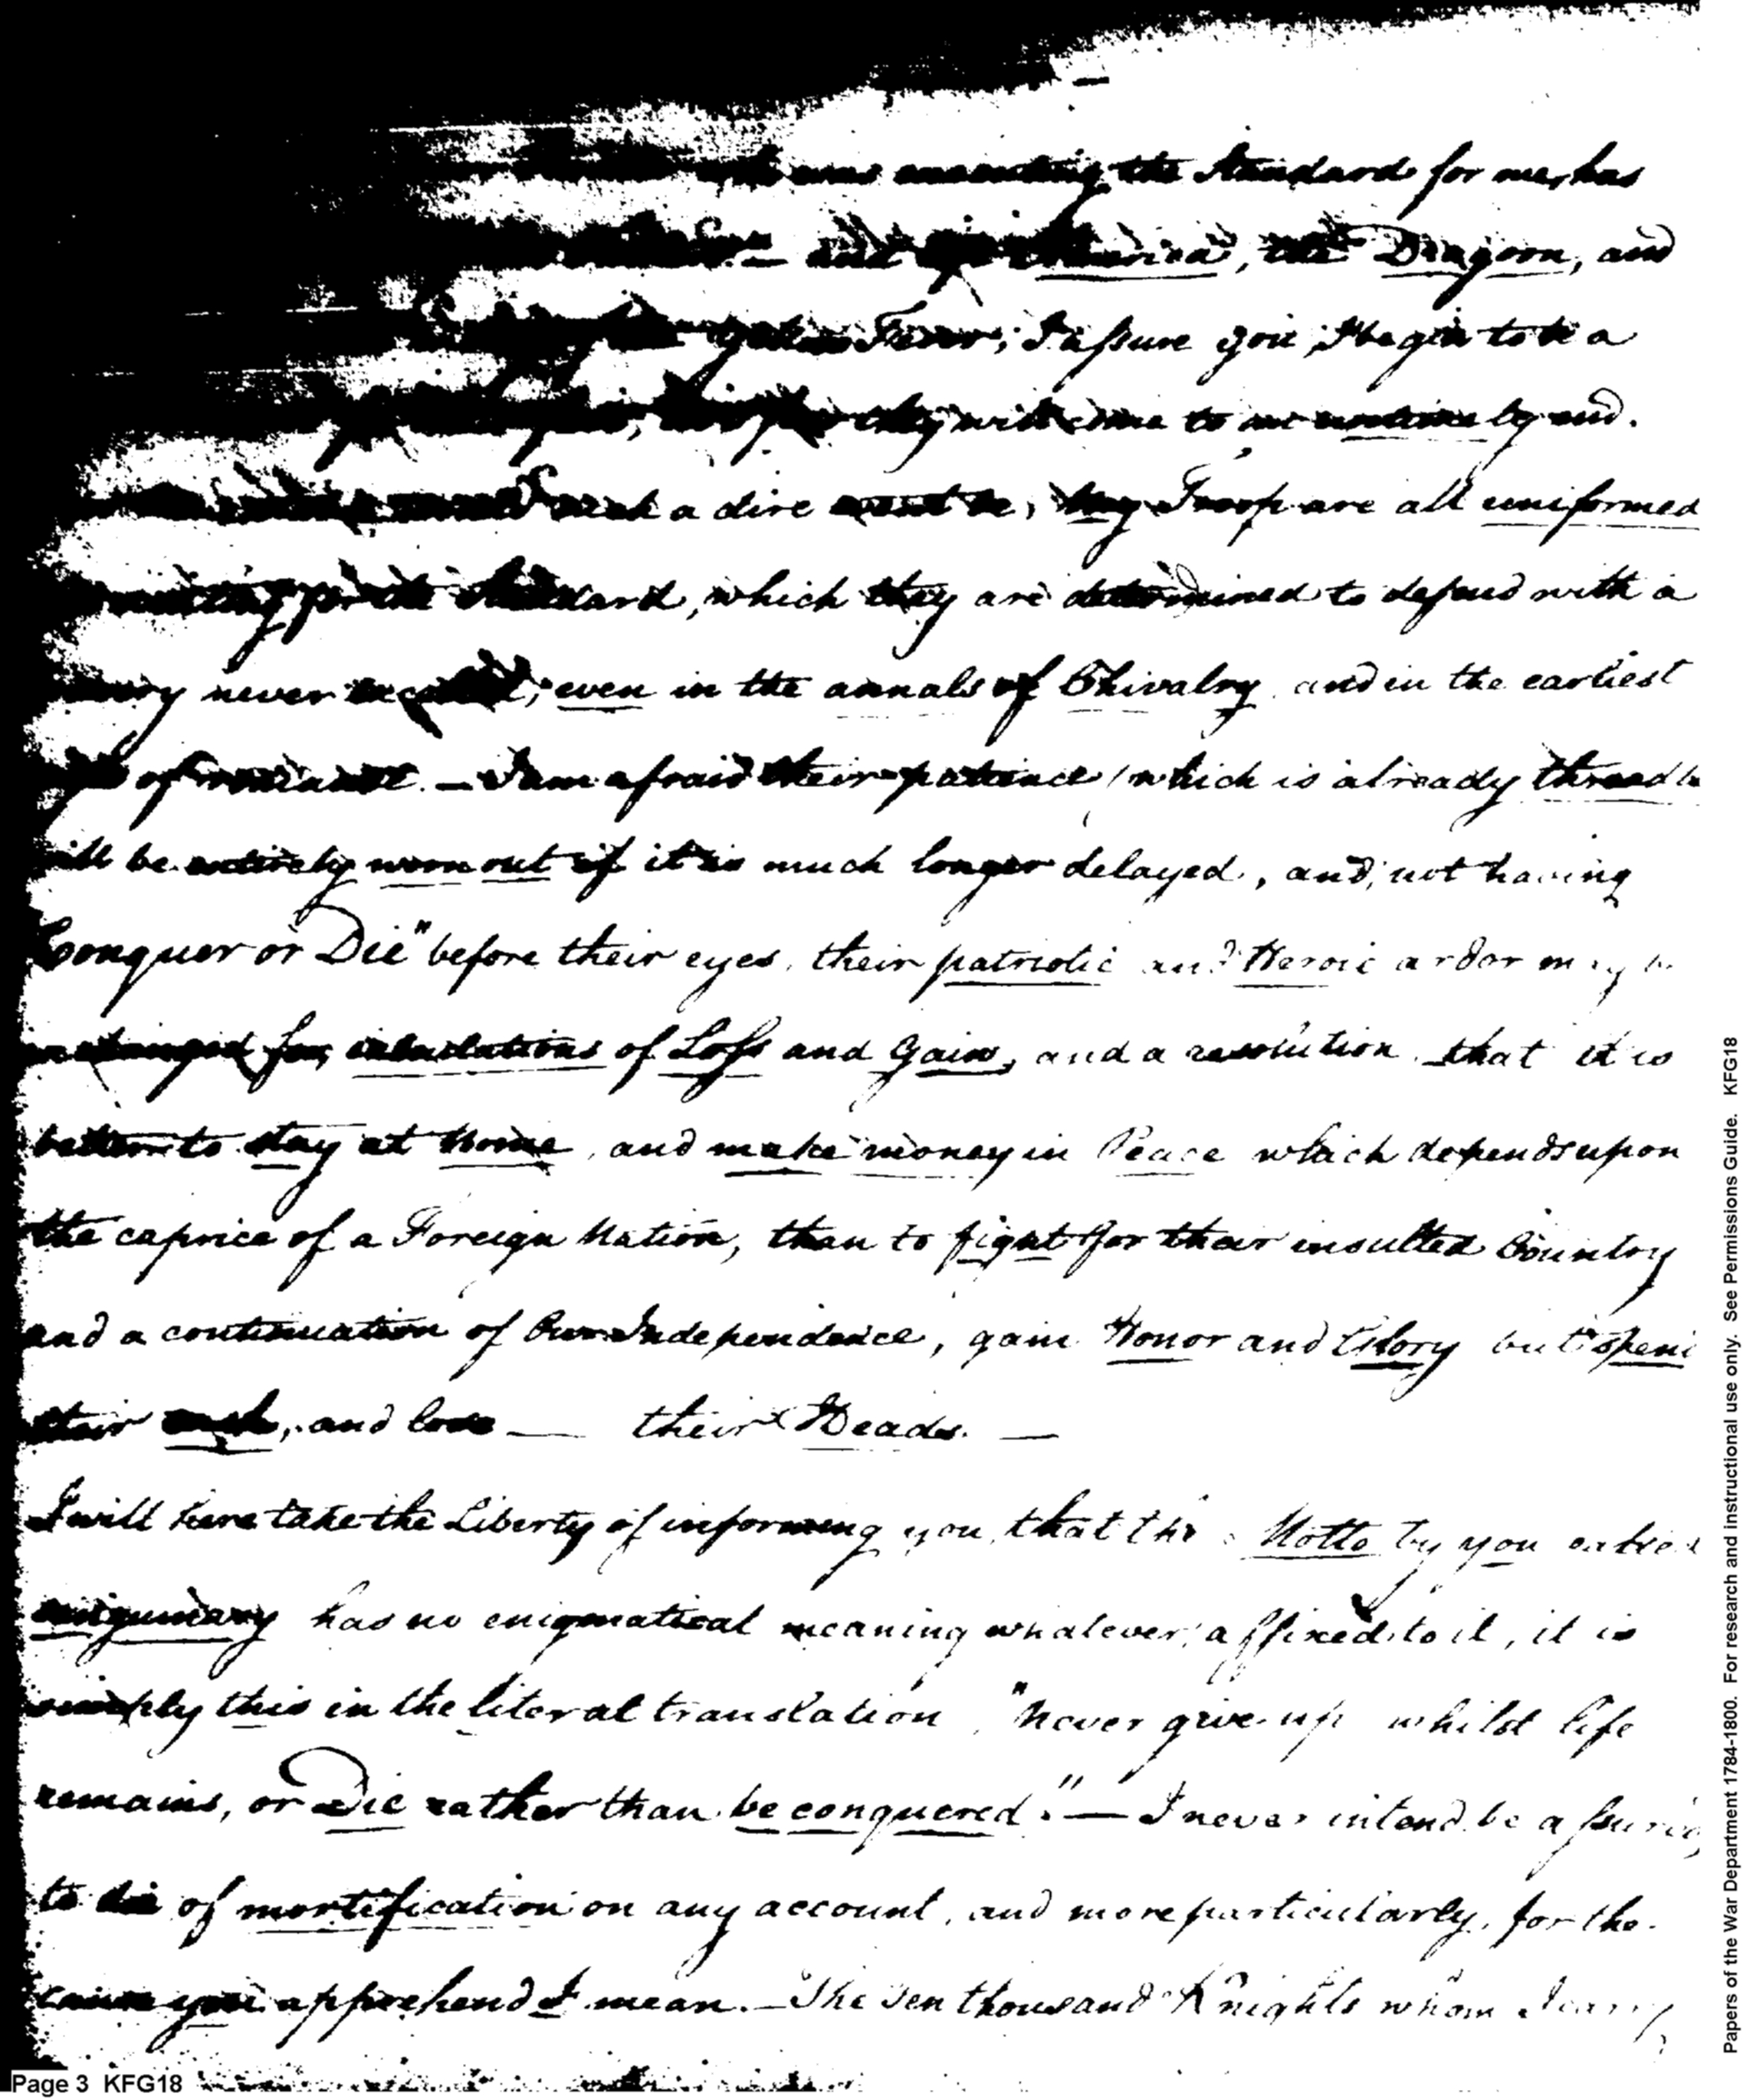 was the Standard for me, has
and America, the Dragoon, and
yellow Fever; I assure you, I begin to be a
they will come to an untimely end.
such a dire event be, My Troop are all uniformed
waiting for the Standard, which they are determined to defend with a
never even in the annals of Chivalry and in the earliest
of romance. — I am afraid their patience (which is already thread
will be entirely worn out if it is much longer delayed, and, not having
Conquer or Die" before their eyes, their patriotic and Heroic ardor may be
exchanged for calculations of Loss and Gain, and a resolution that it is
better to stay at Home, and make money in Peace which depends upon
the caprice of a Foreign Nation, than to fight for their insulted Country
and a continuation of Our Independence, gain Honor and Glory but spend
their cash, and lose — their Heads. —
I will here take the Liberty of informing you, that the Motto by you called
has no enigmatical meaning whatever affixed to it, it is
simply this in the literal translation, "never give up whilst life
remains, or Die rather than be conquered." — I never intend be assured
to die of mortification on any account, and more particularly, for the
cause you apprehend I mean. — The Ten thousand Knights whom I carry
Page 3 KFG18
Papers of the War Department 1784-1800. For research and instructional use only. See Permissions Guide. KFG18